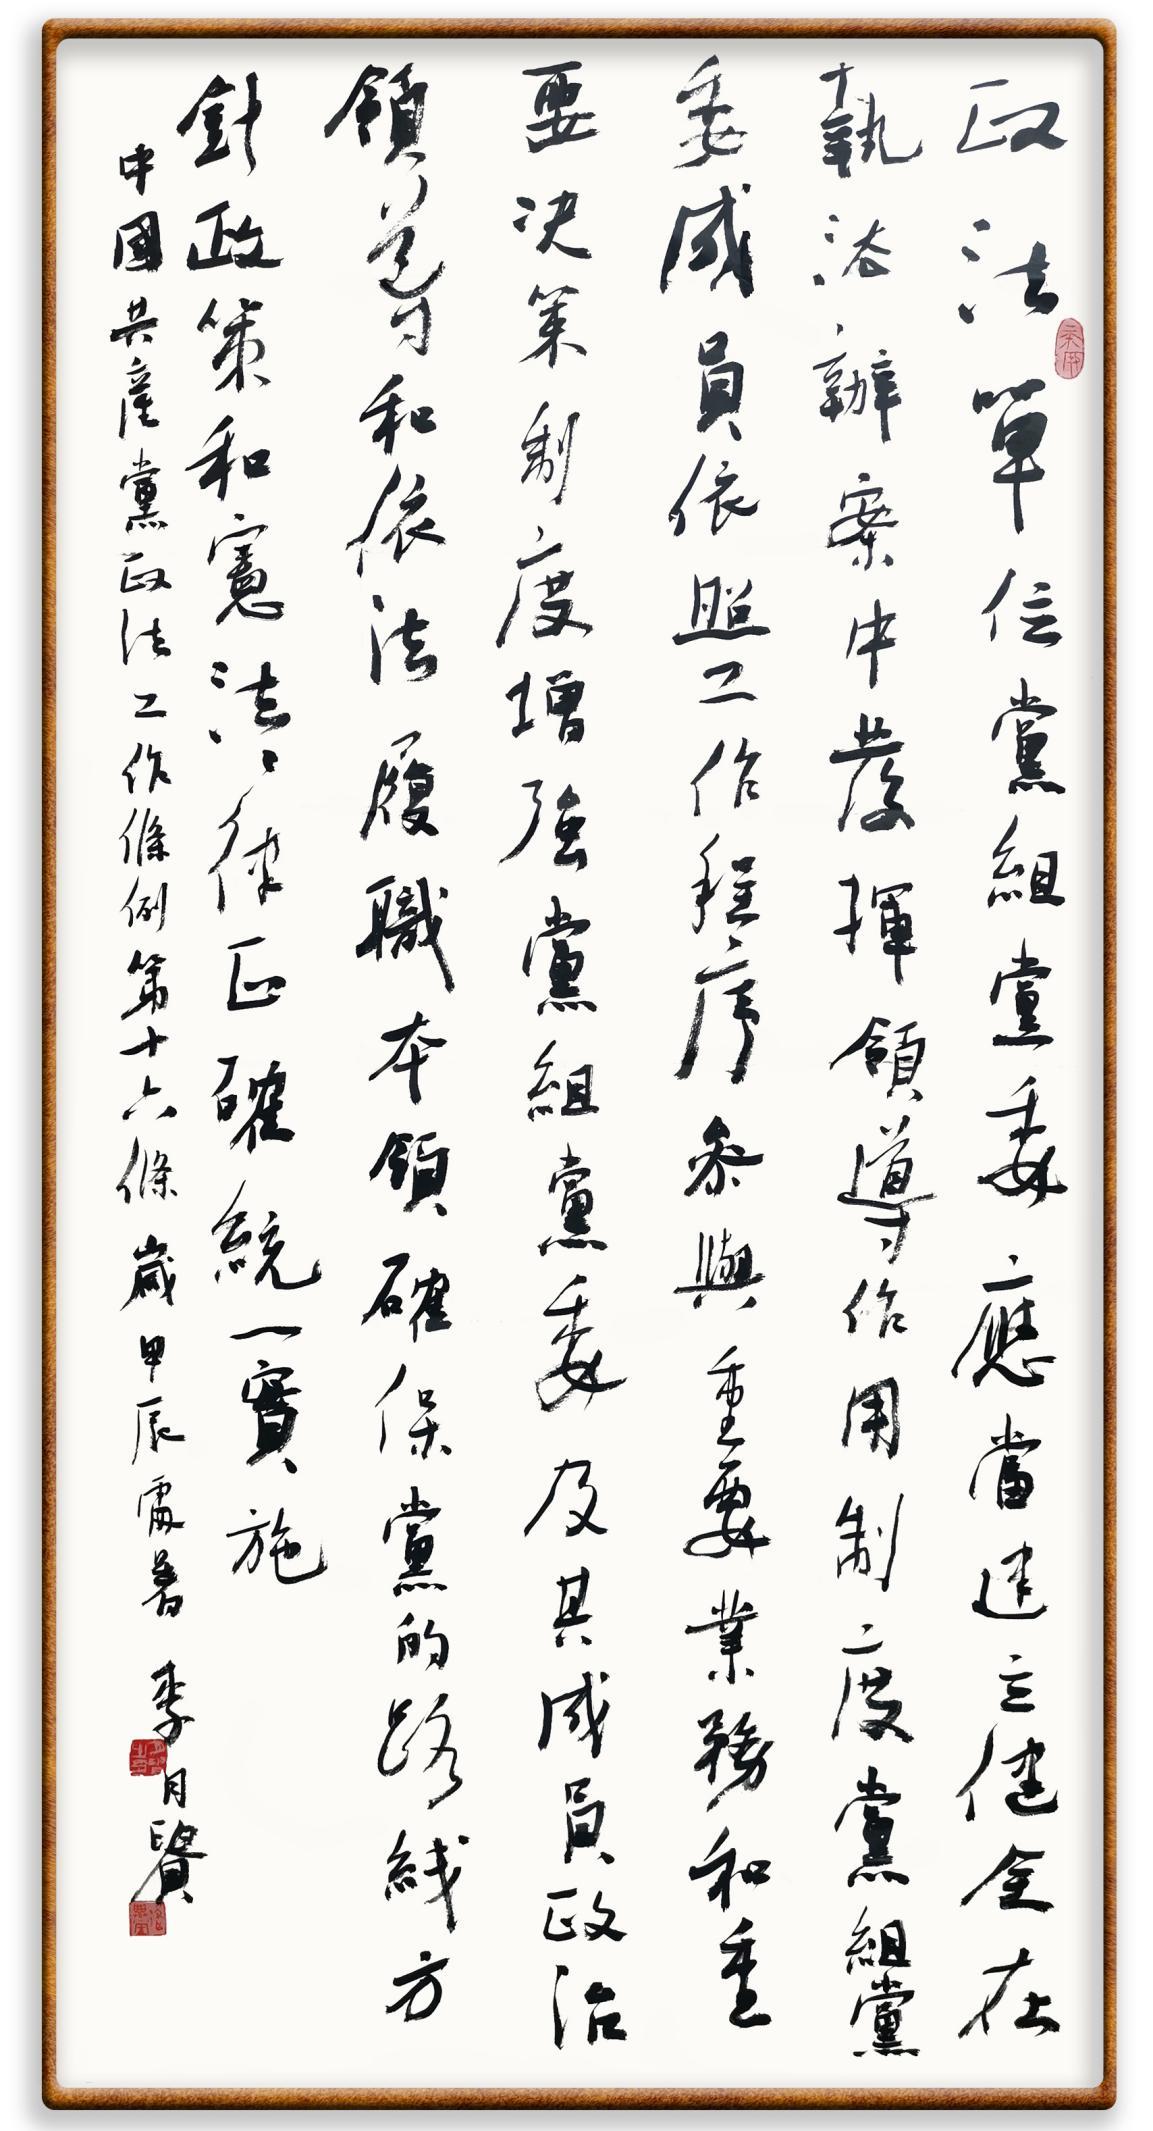 政法單位黨組黨委應當建立健全在
執法辦案中發揮領導作用制度黨組黨
委成員依照工作程序參與重要業務和重
要決策制度增強黨組黨委及其成員政治
領導和依法履職本領確保黨的路綫方
針政策和憲法法律正確統一實施
中國共產黨政法工作條例第十六條歲甲辰處暑 李月賢